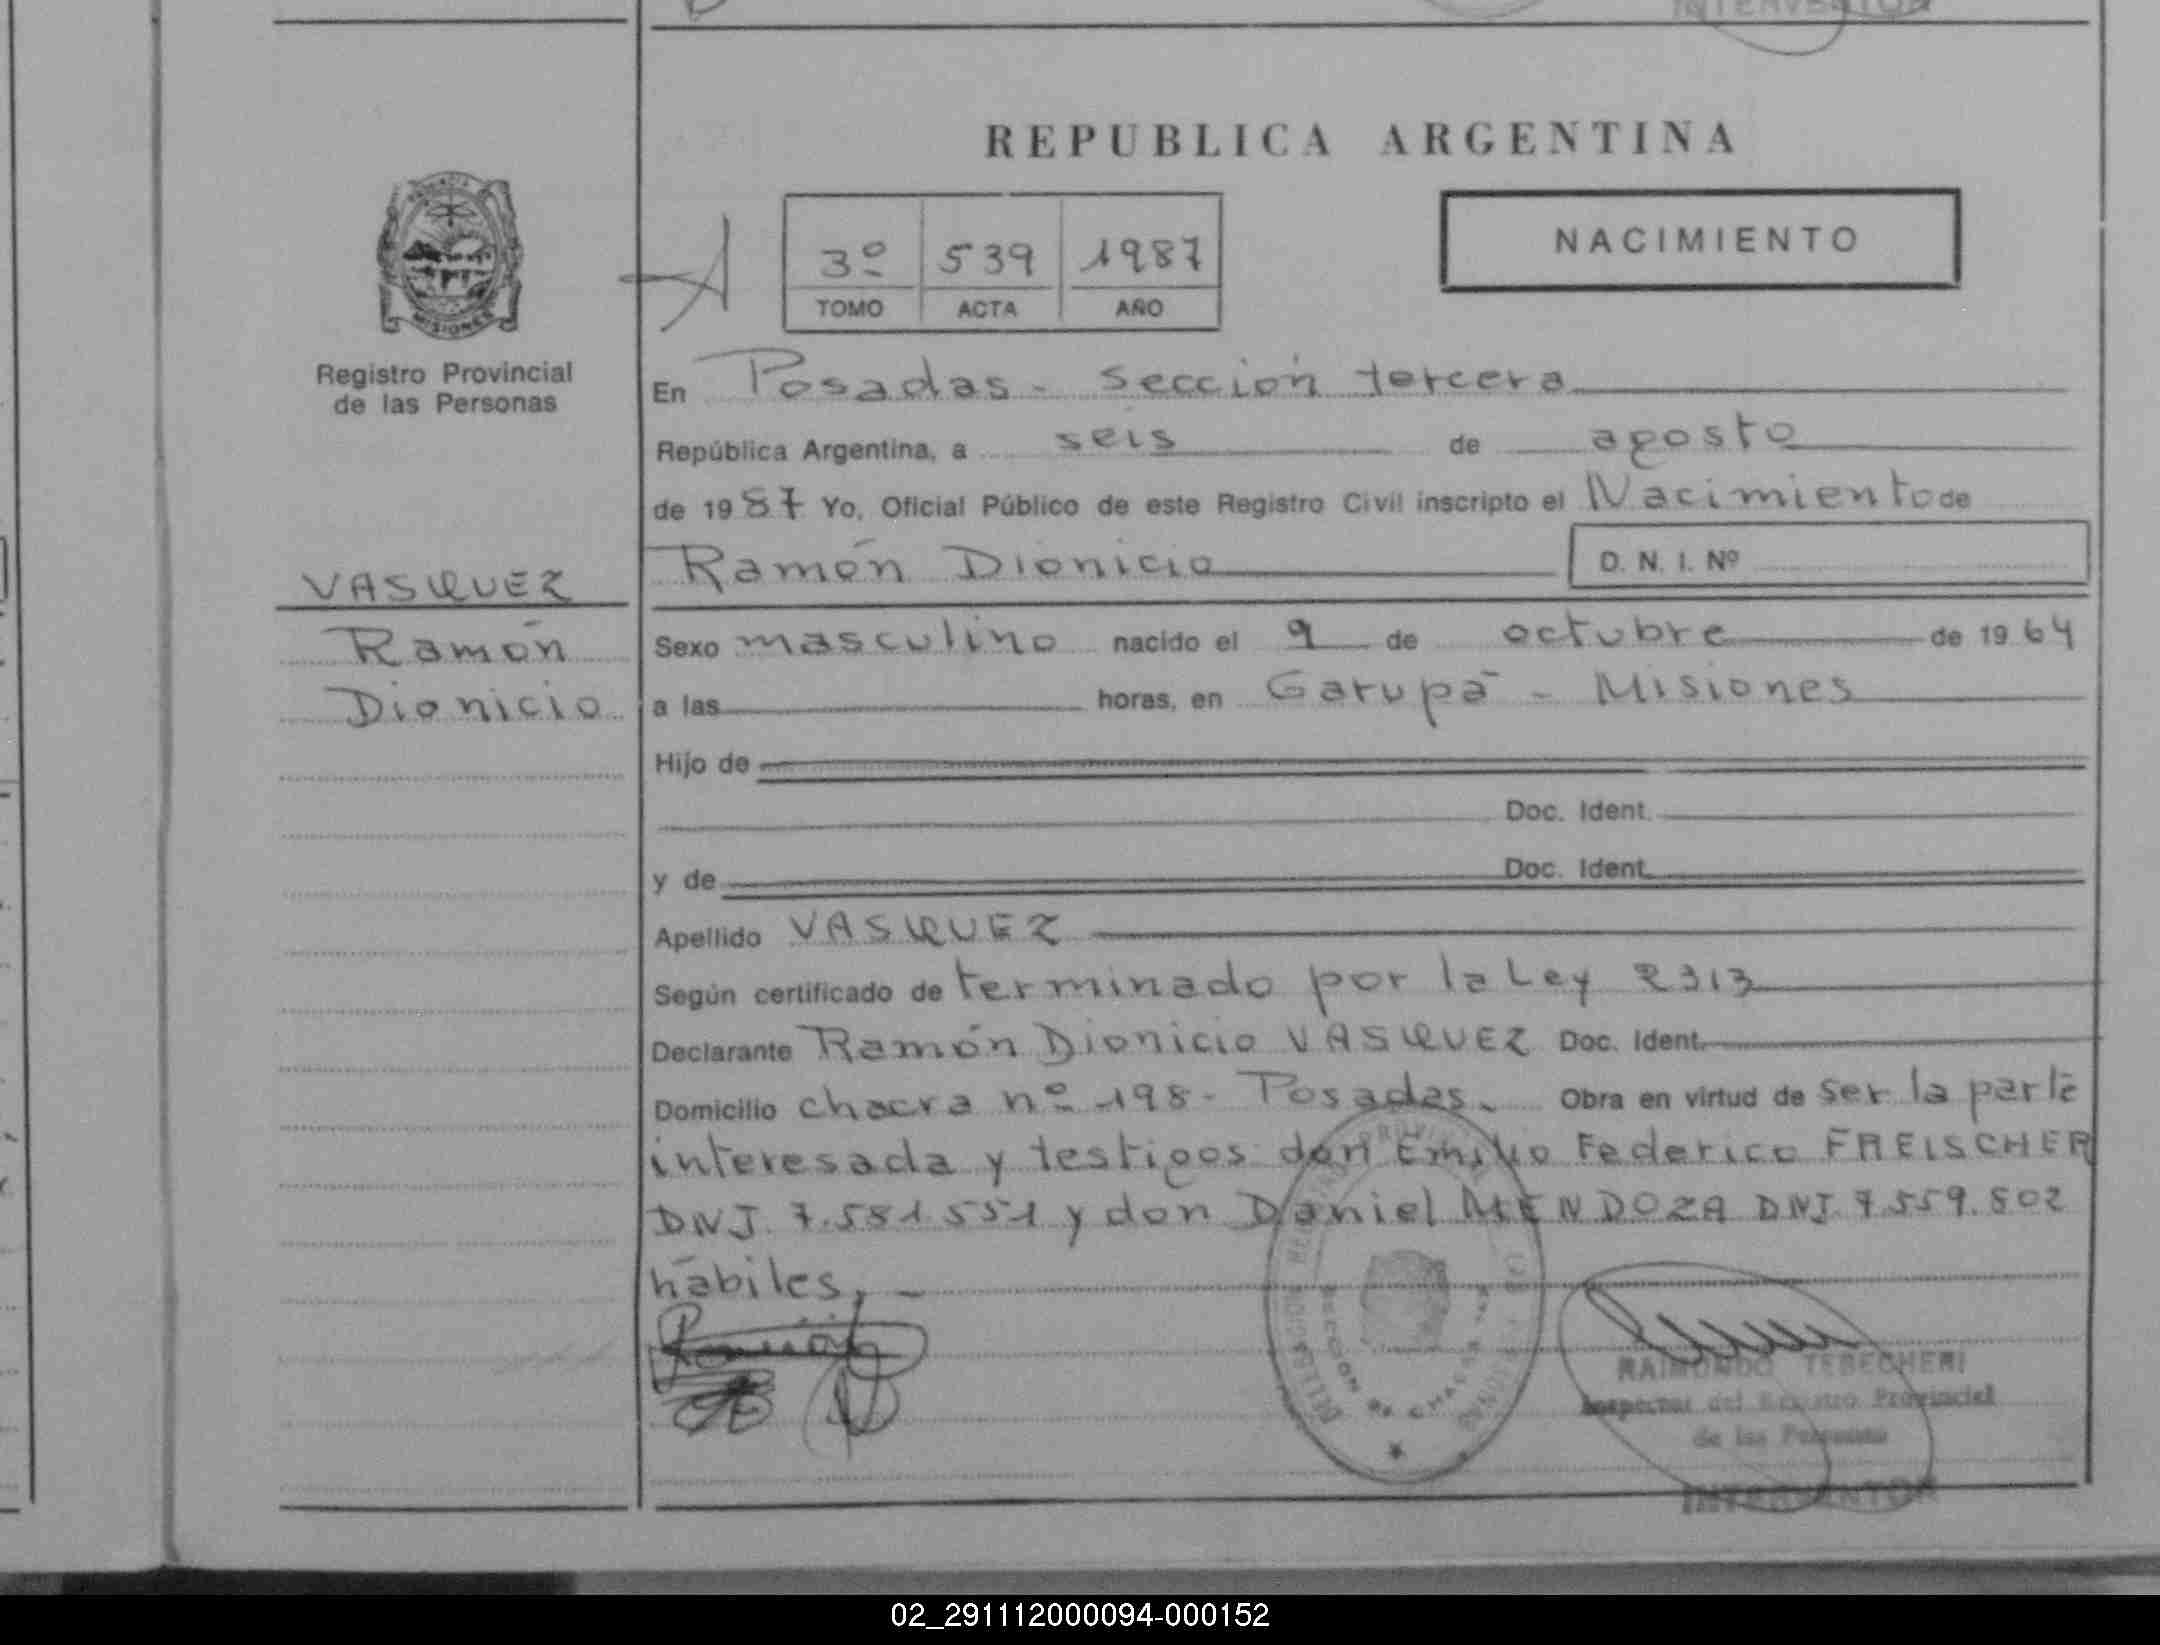 INTERVENTOR
REPUBLICA ARGENTINA
NACIMIENTO
3º 539 1987
TOMO ACTA AÑO
MISIONES
Registro Provincial
de las Personas
En Posadas - sección tercera
República Argentina, a seis de agosto
de 1987 Yo, Oficial Público de este Registro Civil inscripto el Nacimiento de
Ramón Dionicio D. N. I. Nº
VASQUEZ
Ramón
Dionicio
Sexo masculino nacido el 9 de octubre de 1964
a las horas, en Garupá - Misiones
Hijo de
Doc. Ident.
y de Doc. Ident.
Apellido VASQUEZ
Según certificado de terminado por la Ley 2313
Declarante Ramón Dionicio VASQUEZ Doc. Ident.
Domicilio chacra nº 198 - Posadas. Obra en virtud de ser la parte
interesada y testigos don Emilio Federico FREISCHER
DNI. 7.581.551 y don Daniel MENDOZA DNI. 7.559.802
hábiles. -
RAIMUNDO TEBECHERI
Inspector del Registro Provincial
de las Personas
INTERVENTOR
02_291112000094-000152